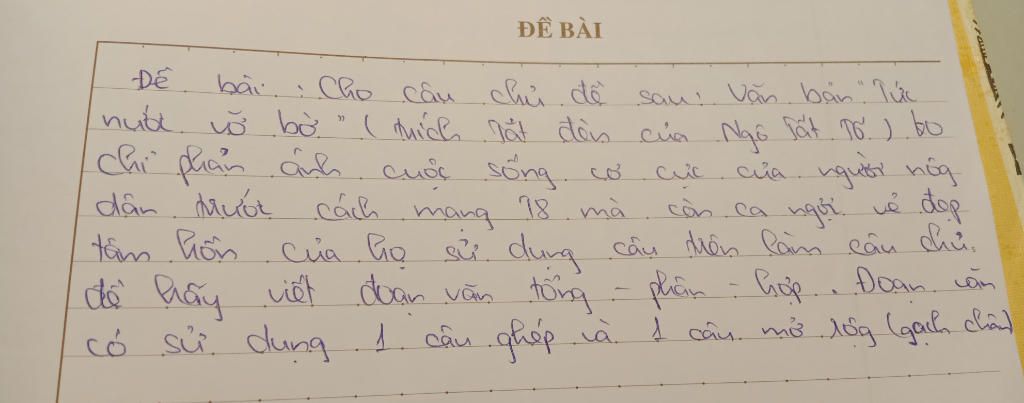 ĐỀ BÀI
Đề bài: Cho câu chủ đề sau: Văn bản "Tức
nước vỡ bờ" (trích Tắt đèn của Ngô Tất Tố) ko
chỉ phản ánh cuộc sống cơ cực của người nôg
dân trước cách mạng T8 mà còn ca ngợi vẻ đẹp
tâm hồn của họ sử dụng câu trên làm câu chủ
đề hãy viết đoạn văn tổng - phân - hợp. Đoạn văn
có sử dụng 1 câu ghép và 1 câu mở rôg (gạch chân)